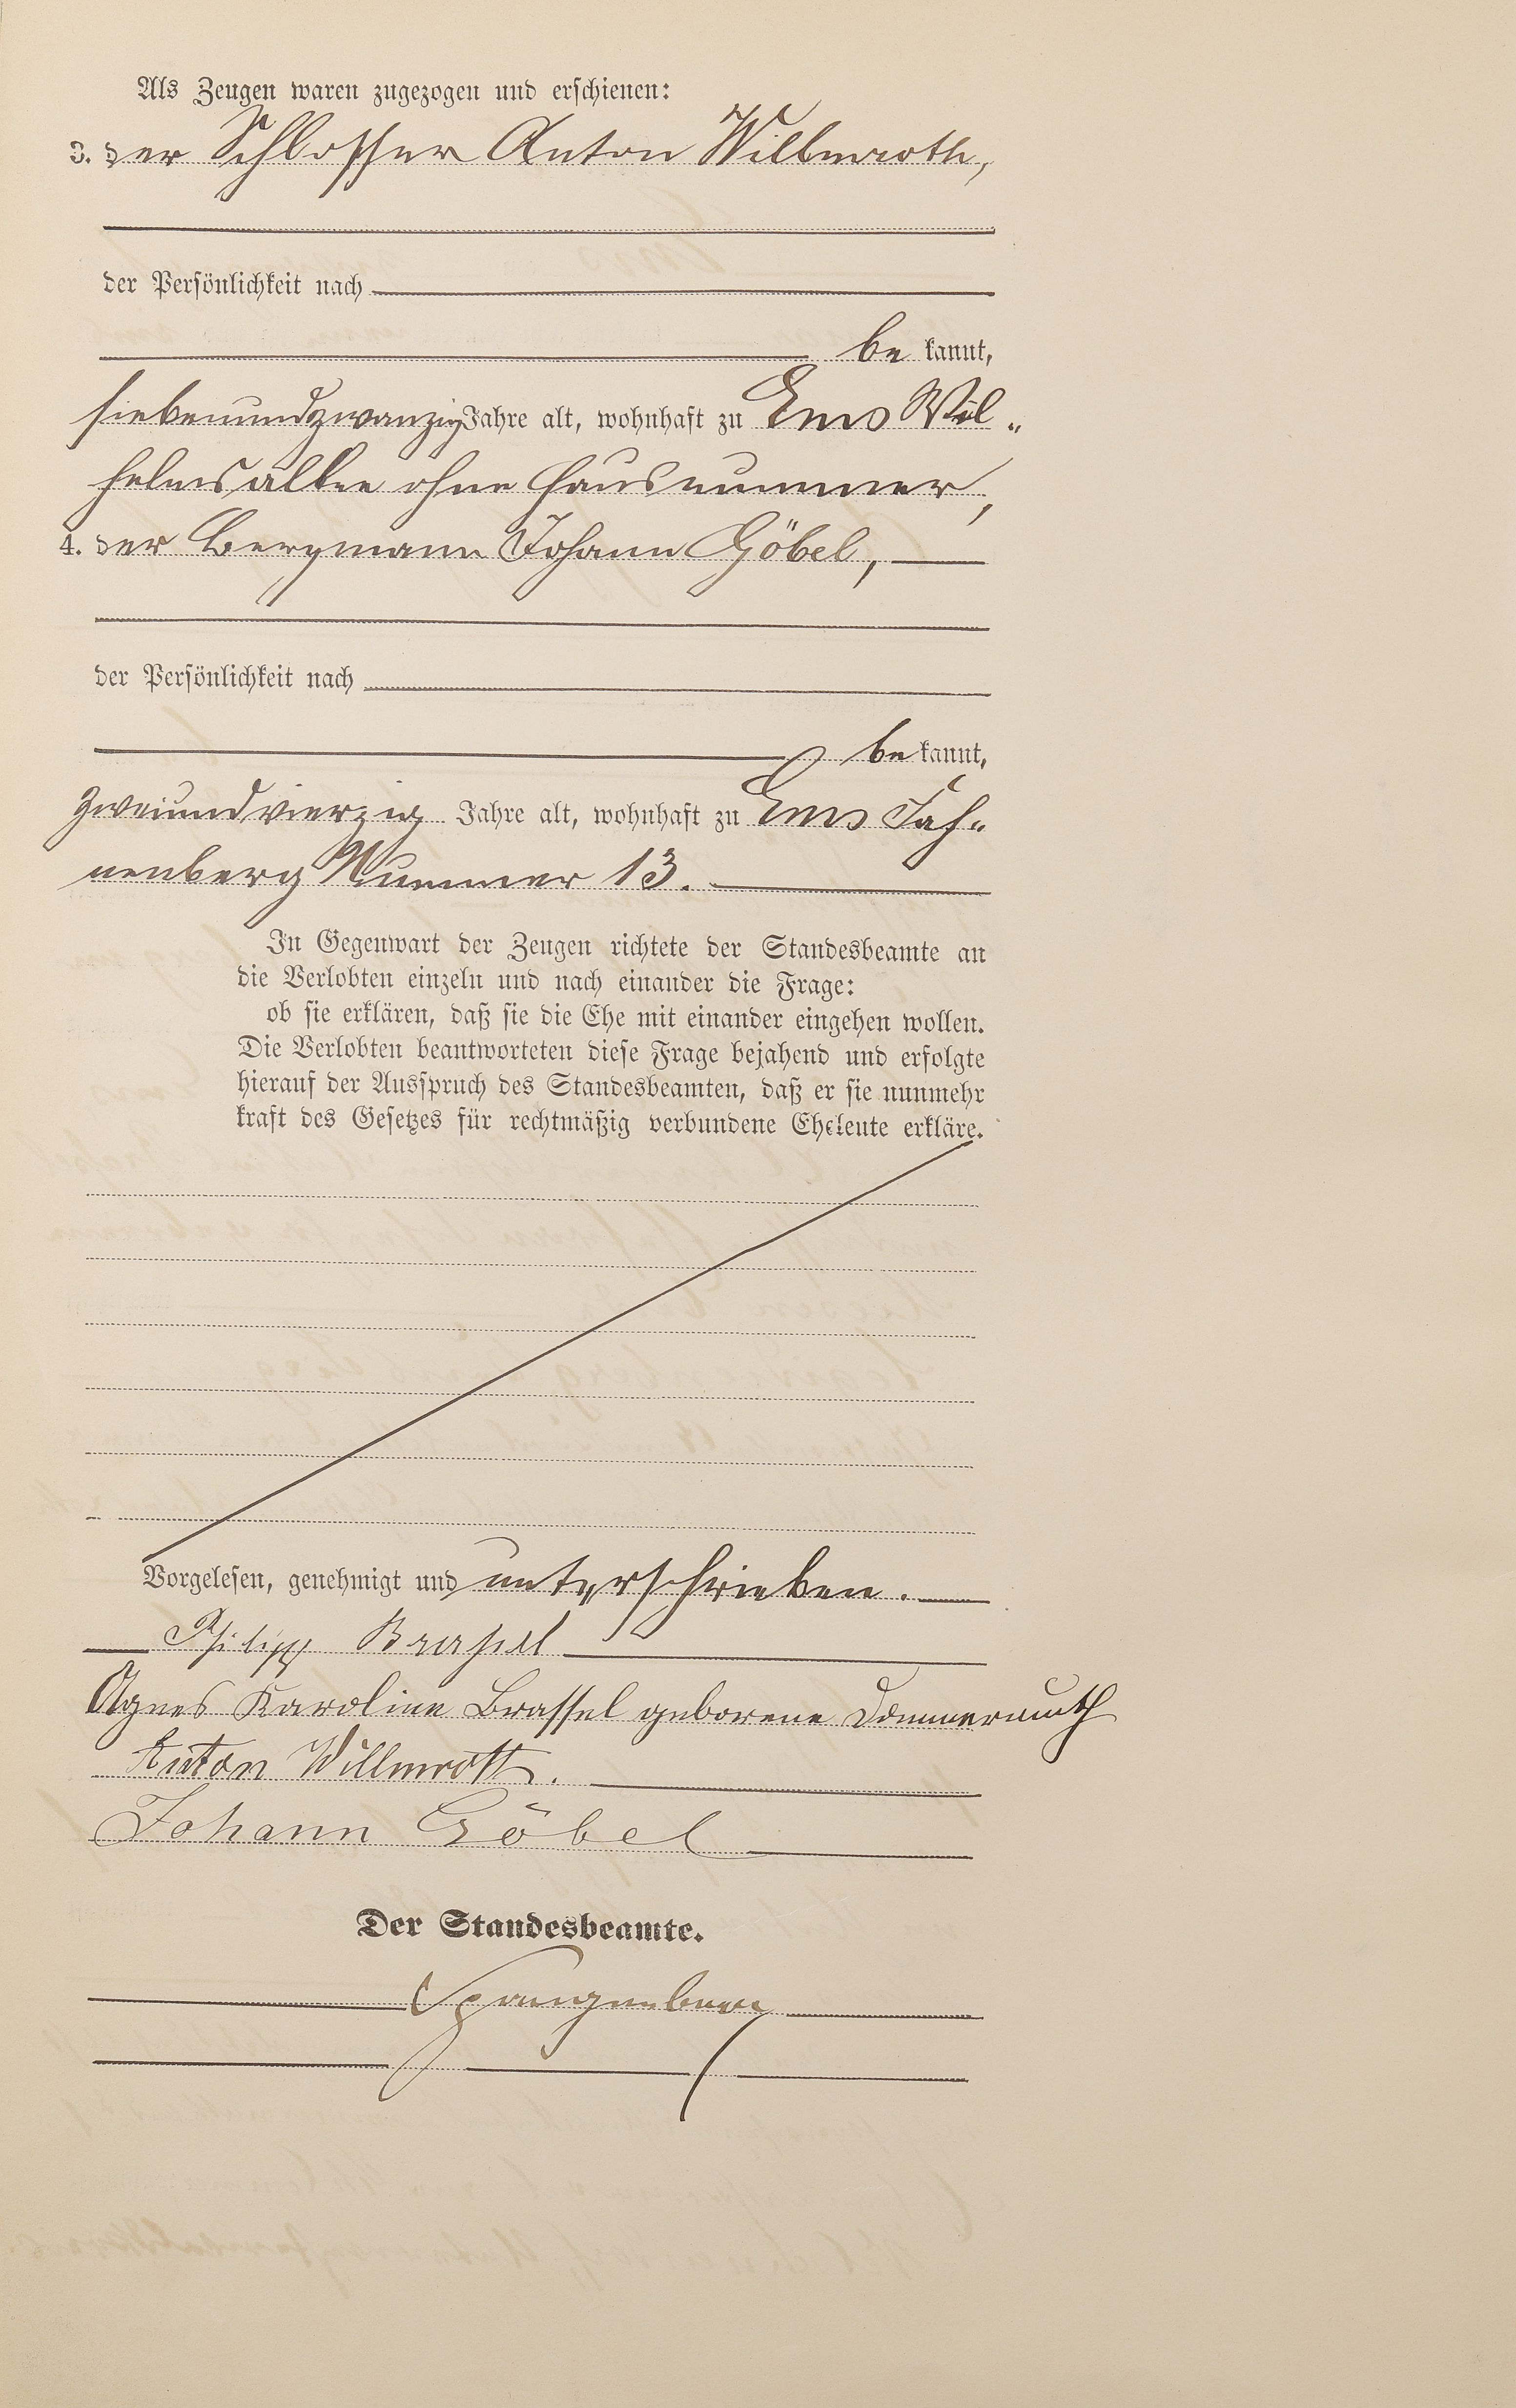 Als Zeugen waren zugezogen und erschienen:
3. der Schlosser Anton Willmroth,
der Persönlichkeit nach
be kannt,
siebenundzwanzig Jahre alt, wohnhaft zu Ems Wil„
helmsallee ohne Hausnummer,
4. der Bergmann Johann Göbel,
der Persönlichkeit nach
be kannt,
zweiundvierzig Jahre alt, wohnhaft zu Ems Fah„
nenberg Nummer 13.
In Gegenwart der Zeugen richtete der Standesbeamte an
die Verlobten einzeln und nach einander die Frage:
ob sie erklären, daß sie die Ehe mit einander eingehen wollen.
Die Verlobten beantworteten diese Frage bejahend und erfolgte
hierauf der Ausspruch des Standesbeamten, daß er sie nunmehr
kraft des Gesetzes für rechtmäßig verbundene Eheleute erkläre.
Vorgelesen, genehmigt und unterschrieben.
Philipp Brassel
Agnes Karoline Brassel geborene Dommermuth
Anton Willmroth.
Johann Göbel
Der Standesbeamte.
Spangenberg